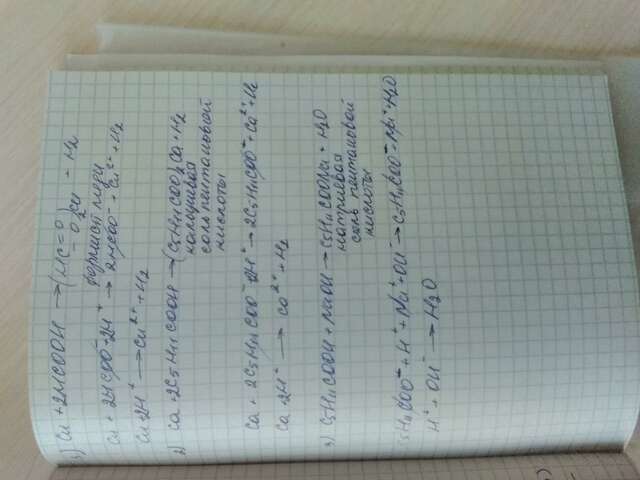 1) Cu + 2HCOOH → (HC=O
-O)₂Cu + H₂
формиат меди
Cu + 2HCOO⁻ + 2H⁺ → 2HCOO⁻ + Cu²⁺ + H₂
Cu + 2H⁺ → Cu²⁺ + H₂
2) Ca + 2C5H11COOH → (C5H11COO)₂Ca + H₂
кальциевая
соль пентановой
кислоты
Ca + 2C5H11COO⁻ + 2H⁺ → 2C5H11COO⁻ + Ca²⁺ + H₂
Ca + 2H⁺ → Ca²⁺ + H₂
3) C5H11COOH + NaOH → C5H11COONa + H₂O
натриевая
соль пентановой
кислоты
C5H11COO⁻ + H⁺ + Na⁺ + OH⁻ → C5H11COO⁻ + Na⁺ + H₂O
H⁺ + OH⁻ → H₂O